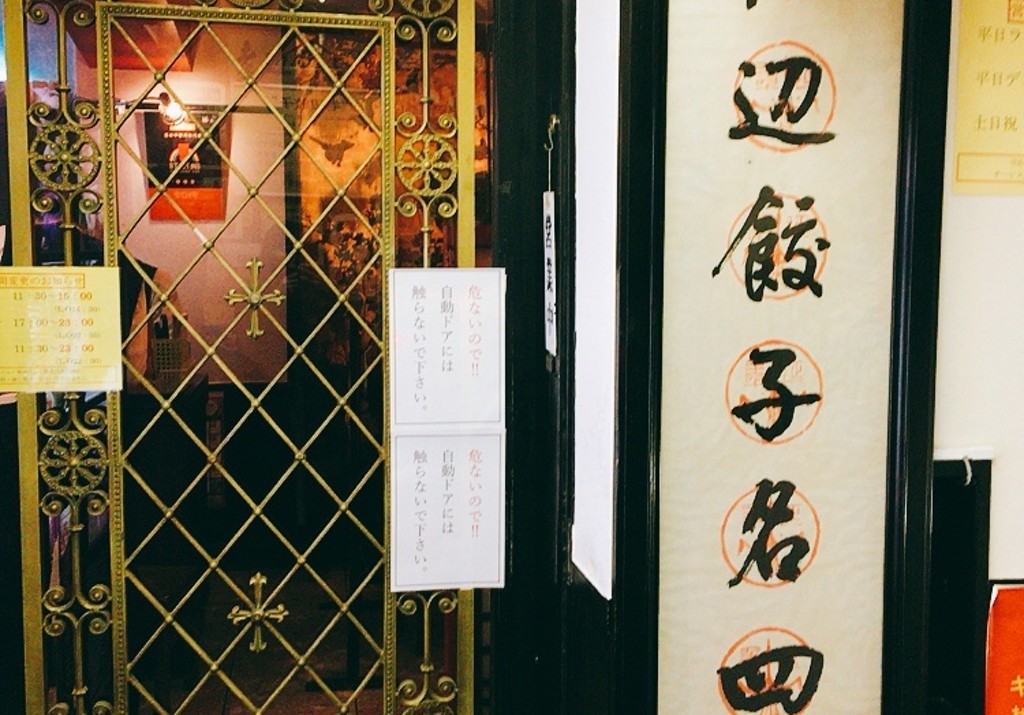 間変更のお知らせ
11:30~15:00
17:00~23:00
11:30~23:00
危ないので!!
自動ドアには
触らないで下さい。
危ないので!!
自動ドアには
触らないで下さい。
営業中
辺餃子名四
平日ラ
平日デ
土日祝
キ